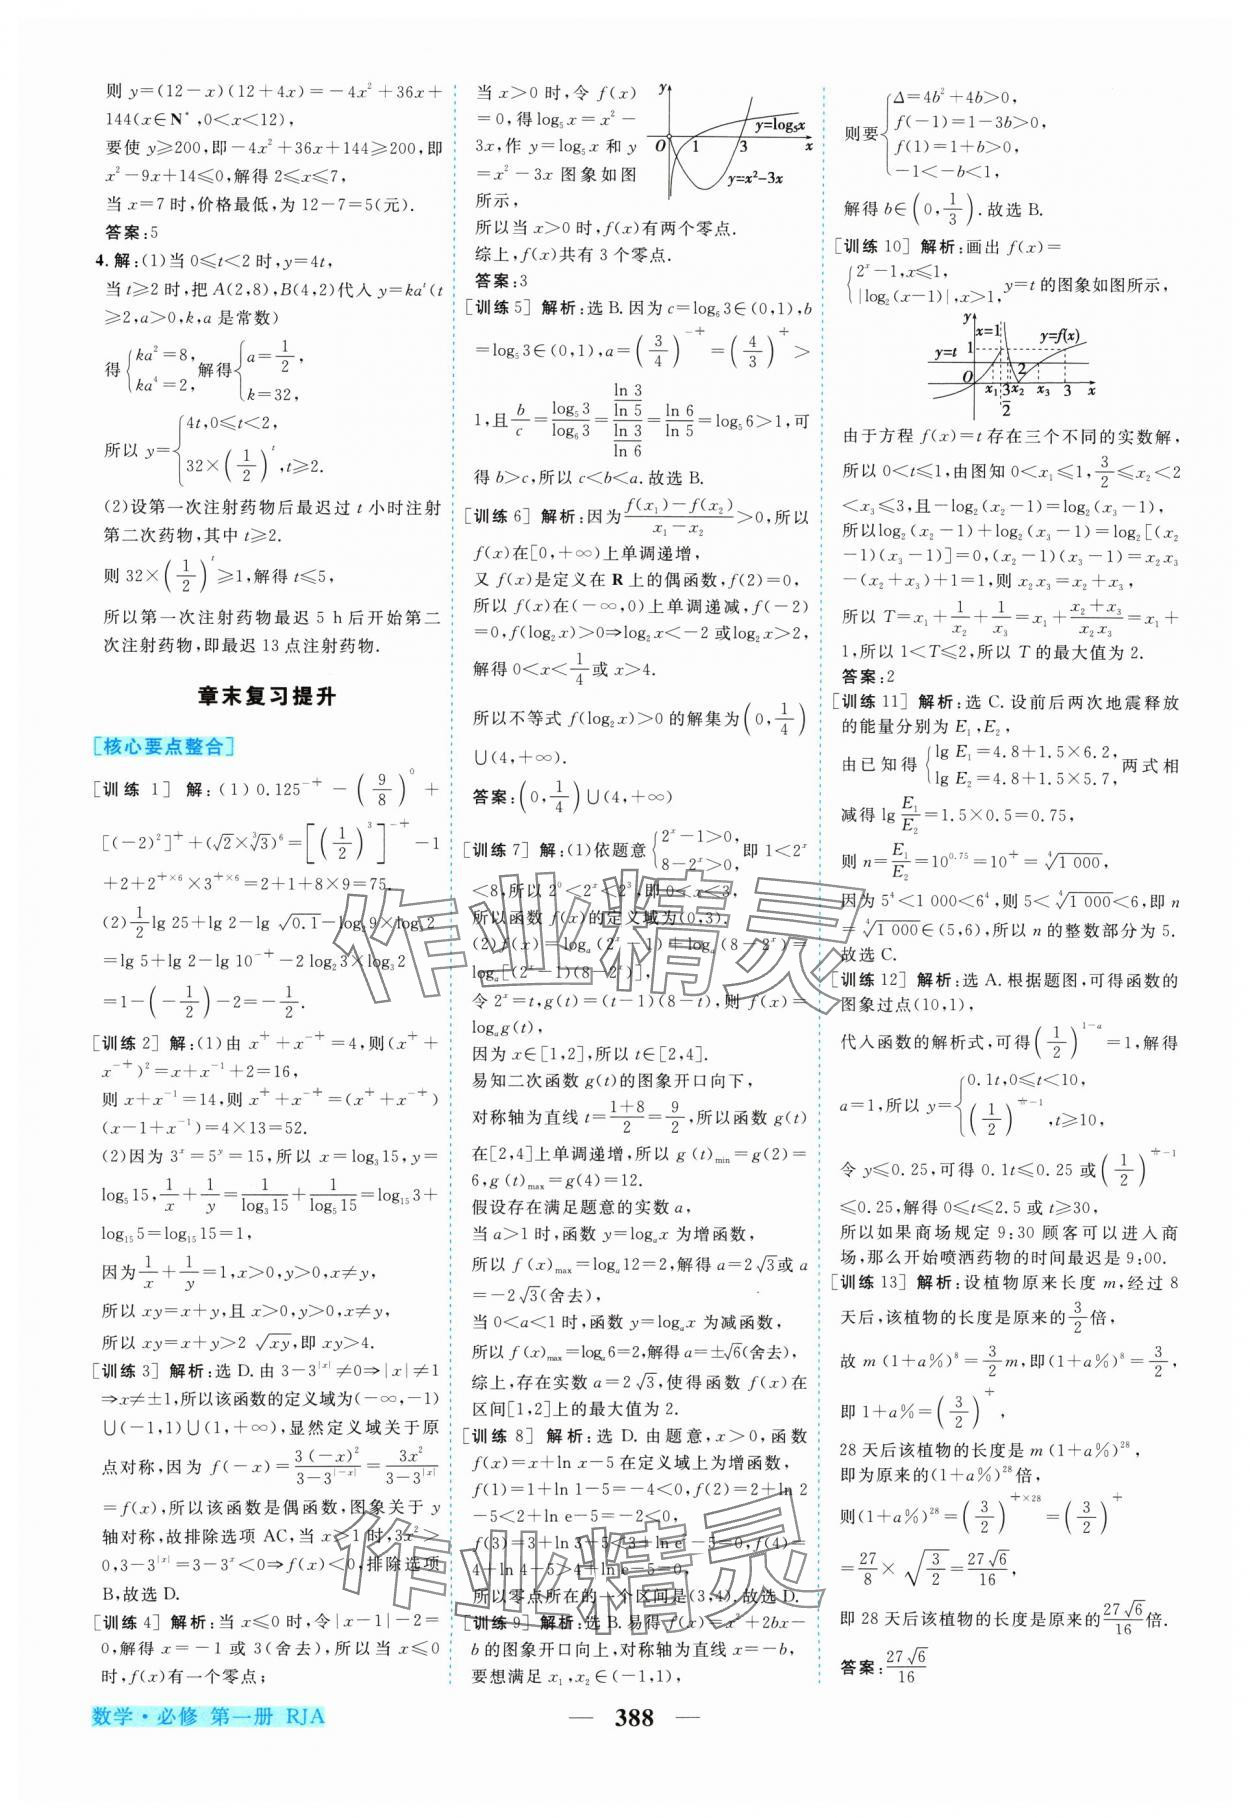 则 y=(12-x)(12+4x)=-4x²+36x+
144(x∈N*,0<x<12),
要使 y≥200,即-4x²+36x+144≥200,即
x²-9x+14≤0,解得 2≤x≤7,
当 x=7 时,价格最低,为 12-7=5(元).
答案:5
4.解:(1)当 0≤t<2 时,y=4t,
当 t≥2 时,把 A(2,8),B(4,2)代入 y=kaᵗ(t
≥2,a>0,k,a 是常数)
得{ka²=8, ka⁴=2, 解得{a=1/2, k=32,
所以 y={4t,0≤t<2, 32×(1/2)ᵗ,t≥2.
(2)设第一次注射药物后最迟过 t 小时注射
第二次药物,其中 t≥2.
则 32×(1/2)ᵗ≥1,解得 t≤5,
所以第一次注射药物最迟 5 h 后开始第二
次注射药物,即最迟 13 点注射药物.
章末复习提升
[核心要点整合]
[训练 1] 解:(1)0.125 -(9/8)⁰+
[(-2)²] +(√2×∛3)⁶=[(1/2)³] -1
+2+2 ×3 =2-1+2+8×9=75.
(2)1/2 lg 25+lg 2-lg √0.1-log₂9×log₃2
=lg 5+lg 2-lg 10 -2log₂3×log₃2
=1-(-1/2)-2=-1/2.
[训练 2] 解:(1)由 x +x =4,则(x +
x )²=x+x⁻¹+2=16,
则 x+x⁻¹=14,则 x +x =(x +x )
(x-1+x⁻¹)=4×13=52.
(2)因为 3ˣ=5ʸ=15,所以 x=log₃15,y=
log₅15,1/x+1/y=1/log₃15+1/log₅15=log₁₅3+
log₁₅5=log₁₅15=1,
因为1/x+1/y=1,x>0,y>0,x≠y,
所以 xy=x+y,且 x>0,y>0,x≠y,
所以 xy=x+y>2 √xy,即 xy>4.
[训练 3] 解析:选 D.由 3-3^|x|≠0⇒|x|≠1
⇒x≠±1,所以该函数的定义域为(-∞,-1)
∪(-1,1)∪(1,+∞),显然定义域关于原
点对称,因为 f(-x)=3(-x)²/(3-3^|-x|)=3x²/(3-3^|x|)
=f(x),所以该函数是偶函数,图象关于 y
轴对称,故排除选项 AC,当 x>1 时,3x²>
0,3-3^|x|=3-3ˣ<0⇒f(x)<0,排除选项
B,故选 D.
[训练 4] 解析:当 x≤0 时,令|x-1|-2=
0,解得 x=-1 或 3(舍去),所以当 x≤0
时,f(x)有一个零点;
当 x>0 时,令 f(x)
=0,得log₅x=x²-
3x,作 y=log₅x 和 y
=x²-3x 图象如图
所示,
y
y=log₅x
O 1 3 x
y=x²-3x
所以当 x>0 时,f(x)有两个零点.
综上,f(x)共有 3 个零点.
答案:3
[训练 5] 解析:选 B.因为 c=log₆3∈(0,1),b
=log₅3∈(0,1),a=(3/4) =(4/3) >
1,且b/c=log₅3/log₆3=(ln 3/ln 5)/(ln 3/ln 6)=ln 6/ln 5=log₅6>1,可
得 b>c,所以 c<b<a.故选 B.
[训练 6] 解析:因为(f(x₁)-f(x₂))/(x₁-x₂)>0,所以
f(x)在[0,+∞)上单调递增,
又 f(x)是定义在 R 上的偶函数,f(2)=0,
所以 f(x)在(-∞,0)上单调递减,f(-2)
=0,f(log₂x)>0⇒log₂x<-2 或log₂x>2,
解得 0<x<1/4或 x>4.
所以不等式 f(log₂x)>0 的解集为(0,1/4)
∪(4,+∞).
答案:(0,1/4)∪(4,+∞)
[训练 7] 解:(1)依题意{2ˣ-1>0, 8-2ˣ>0, 即 1<2ˣ
<8,所以 2⁰<2ˣ<2³,即 0<x<3,
所以函数 f(x)的定义域为(0,3).
(2)f(x)=logₐ(2ˣ-1)+logₐ(8-2ˣ)=
logₐ[(2ˣ-1)(8-2ˣ)]
令 2ˣ=t,g(t)=(t-1)(8-t),则 f(x)=
logₐg(t),
因为 x∈[1,2],所以 t∈[2,4].
易知二次函数 g(t)的图象开口向下,
对称轴为直线 t=(1+8)/2=9/2,所以函数 g(t)
在[2,4]上单调递增,所以 g(t)min=g(2)=
6,g(t)max=g(4)=12.
假设存在满足题意的实数 a,
当 a>1 时,函数 y=logₐx 为增函数,
所以 f(x)max=logₐ12=2,解得 a=2√3或 a
=-2√3(舍去),
当 0<a<1 时,函数 y=logₐx 为减函数,
所以 f(x)max=logₐ6=2,解得 a=±√6(舍去),
综上,存在实数 a=2√3,使得函数 f(x)在
区间[1,2]上的最大值为 2.
[训练 8] 解析:选 D.由题意,x>0,函数
f(x)=x+ln x-5在定义域上为增函数,
f(1)=1+ln 1-5=-4<0,f(2)=2+ln 2
-5<2+ln e-5=-2<0,
f(3)=3+ln 3-5<3+ln e²-5=0,f(4)=
4+ln 4-5>4+ln e-5=0,
所以零点所在的一个区间是(3,4).故选 D.
[训练 9] 解析:选 B.易得 f(x)=x²+2bx-
b 的图象开口向上,对称轴为直线 x=-b,
要想满足 x₁,x₂∈(-1,1),
则要{Δ=4b²+4b>0, f(-1)=1-3b>0, f(1)=1+b>0, -1<-b<1,
解得 b∈(0,1/3).故选 B.
[训练 10] 解析:画出 f(x)=
{2ˣ-1,x≤1, |log₂(x-1)|,x>1, y=t 的图象如图所示,
y x=1 y=f(x)
y=t 1
O x₁ 3/2 x₂ 2 x₃ 3 x
由于方程 f(x)=t 存在三个不同的实数解,
所以 0<t≤1,由图知 0<x₁≤1,3/2≤x₂<2
<x₃≤3,且-log₂(x₂-1)=log₂(x₃-1),
所以log₂(x₂-1)+log₂(x₃-1)=log₂[(x₂
-1)(x₃-1)]=0,(x₂-1)(x₃-1)=x₂x₃
-(x₂+x₃)+1=1,则 x₂x₃=x₂+x₃,
所以 T=x₁+1/x₂+1/x₃=x₁+(x₂+x₃)/(x₂x₃)=x₁+
1,所以 1<T≤2,所以 T 的最大值为 2.
答案:2
[训练 11] 解析:选 C.设前后两次地震释放
的能量分别为 E₁,E₂,
由已知得{lg E₁=4.8+1.5×6.2, lg E₂=4.8+1.5×5.7, 两式相
减得 lg E₁/E₂=1.5×0.5=0.75,
则 n=E₁/E₂=10^0.75=10 =⁴√1 000,
因为 5⁴<1 000<6⁴,则 5<⁴√1 000<6,即 n
=⁴√1 000∈(5,6),所以 n 的整数部分为 5.
故选 C.
[训练 12] 解析:选 A.根据题图,可得函数的
图象过点(10,1),
代入函数的解析式,可得(1/2)^(1-a)=1,解得
a=1,所以 y={0.1t,0≤t<10, (1/2) -1,t≥10,
令 y≤0.25,可得 0.1t≤0.25 或(1/2) -1
≤0.25,解得 0≤t≤2.5 或 t≥30,
所以如果商场规定 9:30 顾客可以进入商
场,那么开始喷洒药物的时间最迟是 9:00.
[训练 13] 解析:设植物原来长度 m,经过 8
天后,该植物的长度是原来的3/2倍,
故 m(1+a%)⁸=3/2m,即(1+a%)⁸=3/2,
即 1+a%=(3/2) ,
28 天后该植物的长度是 m(1+a%)²⁸,
即为原来的(1+a%)²⁸倍,
则(1+a%)²⁸=(3/2) ×28=(3/2)
=27/8×√(3/2)=27√6/16,
即 28 天后该植物的长度是原来的27√6/16倍.
答案:27√6/16
数学·必修 第一册 RJA
— 388 —
作业精灵
作业精灵